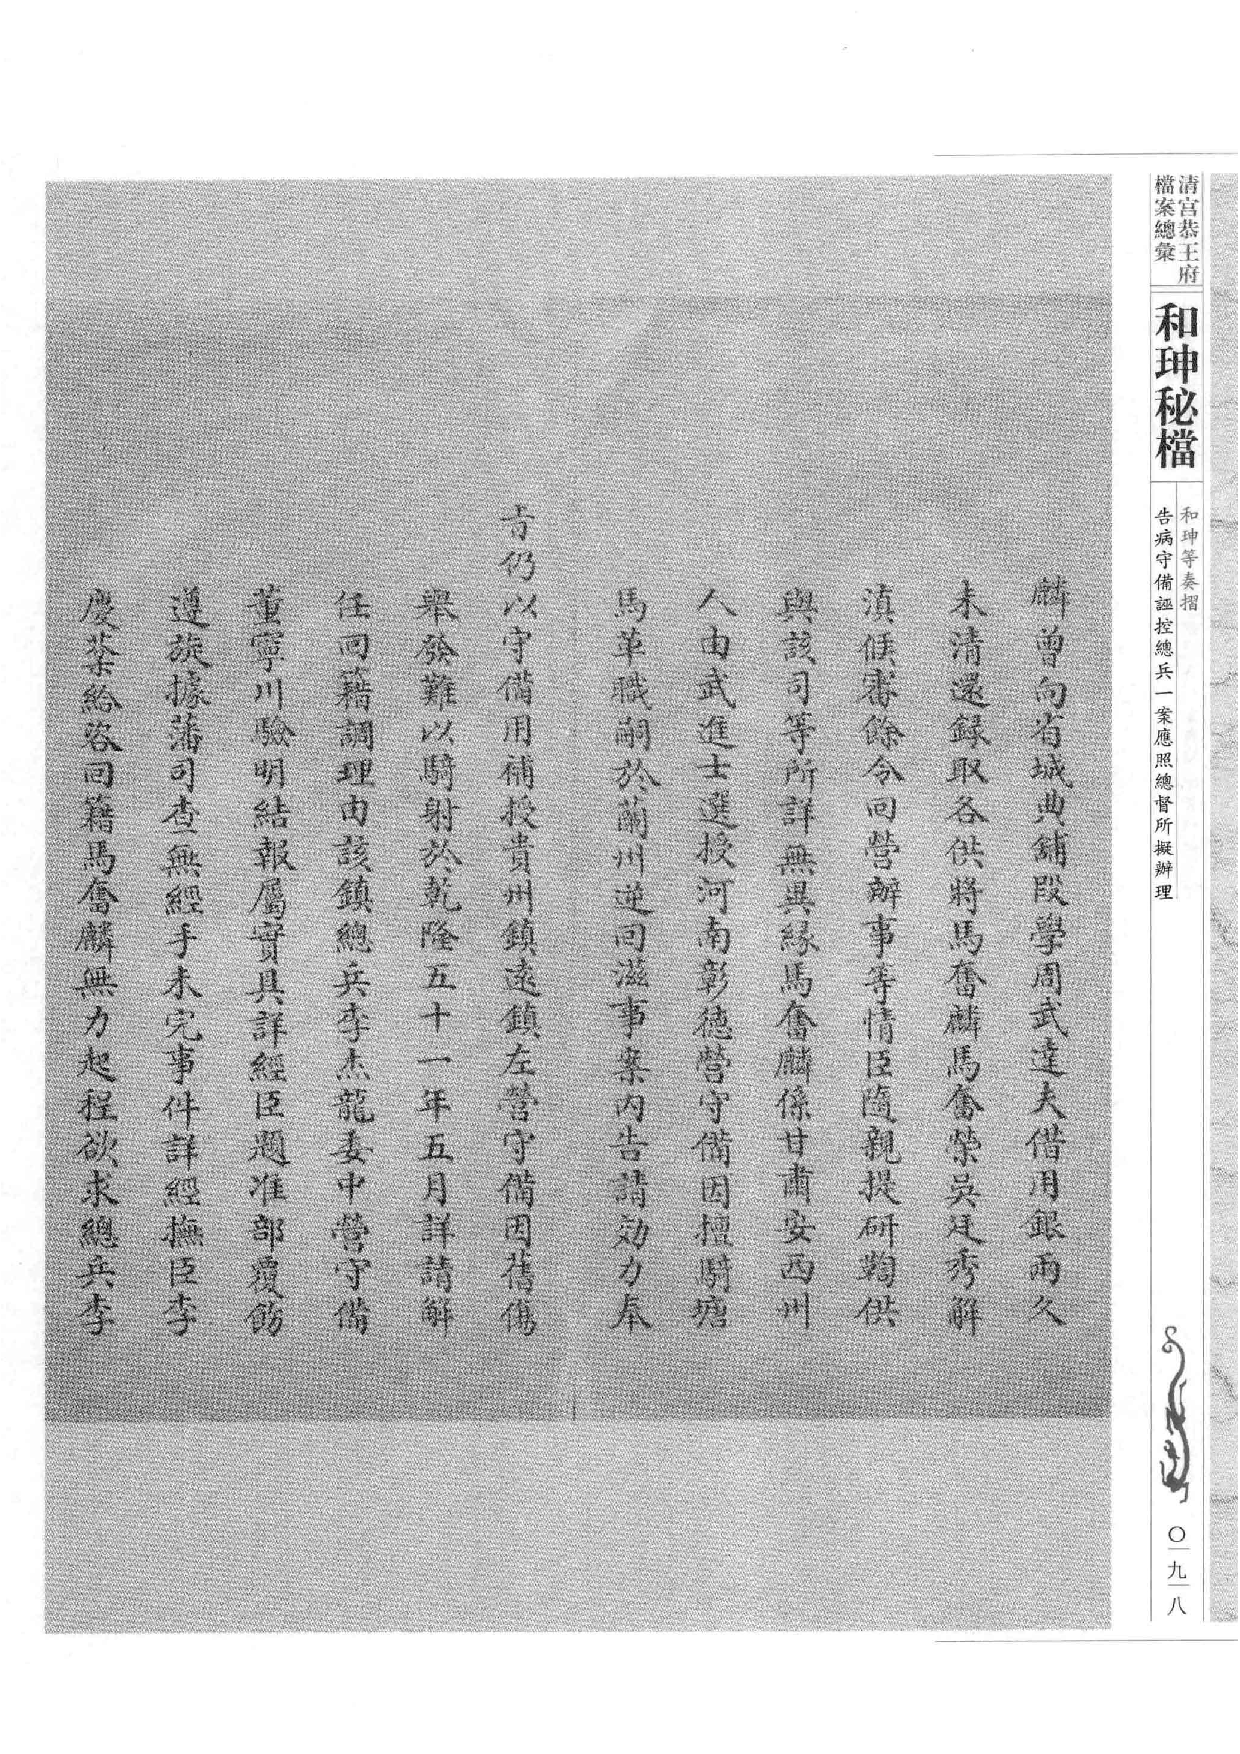 清宮恭王府
檔案總彙
和珅秘檔
和珅等奏摺
告病守備誣控總兵一案應照總督所擬辦理
〇九八
麟曾向省城典鋪段學周武達夫借用銀兩久
未清還録取各供將馬奮麟馬奮榮吳廷秀解
滇候審餘令回營辦事等情臣隨親提研鞫供
與該司等所詳無異緣馬奮麟係甘肅安西州
人由武進士選授河南彰德營守備因擅騎塘
馬革職嗣於蘭州逆回滋事案內告請効力奉
旨仍以守備用補授貴州鎮遠鎮左營守備因舊傷
舉發難以騎射於乾隆五十一年五月詳請解
任回籍調理由該鎮總兵李杰龍委中營守備
董寧川驗明結報屬實具詳經臣題准部覆飭
遵旋據藩司查無經手未完事件詳經撫臣李
慶棻給咨回籍馬奮麟無力起程欲求總兵李